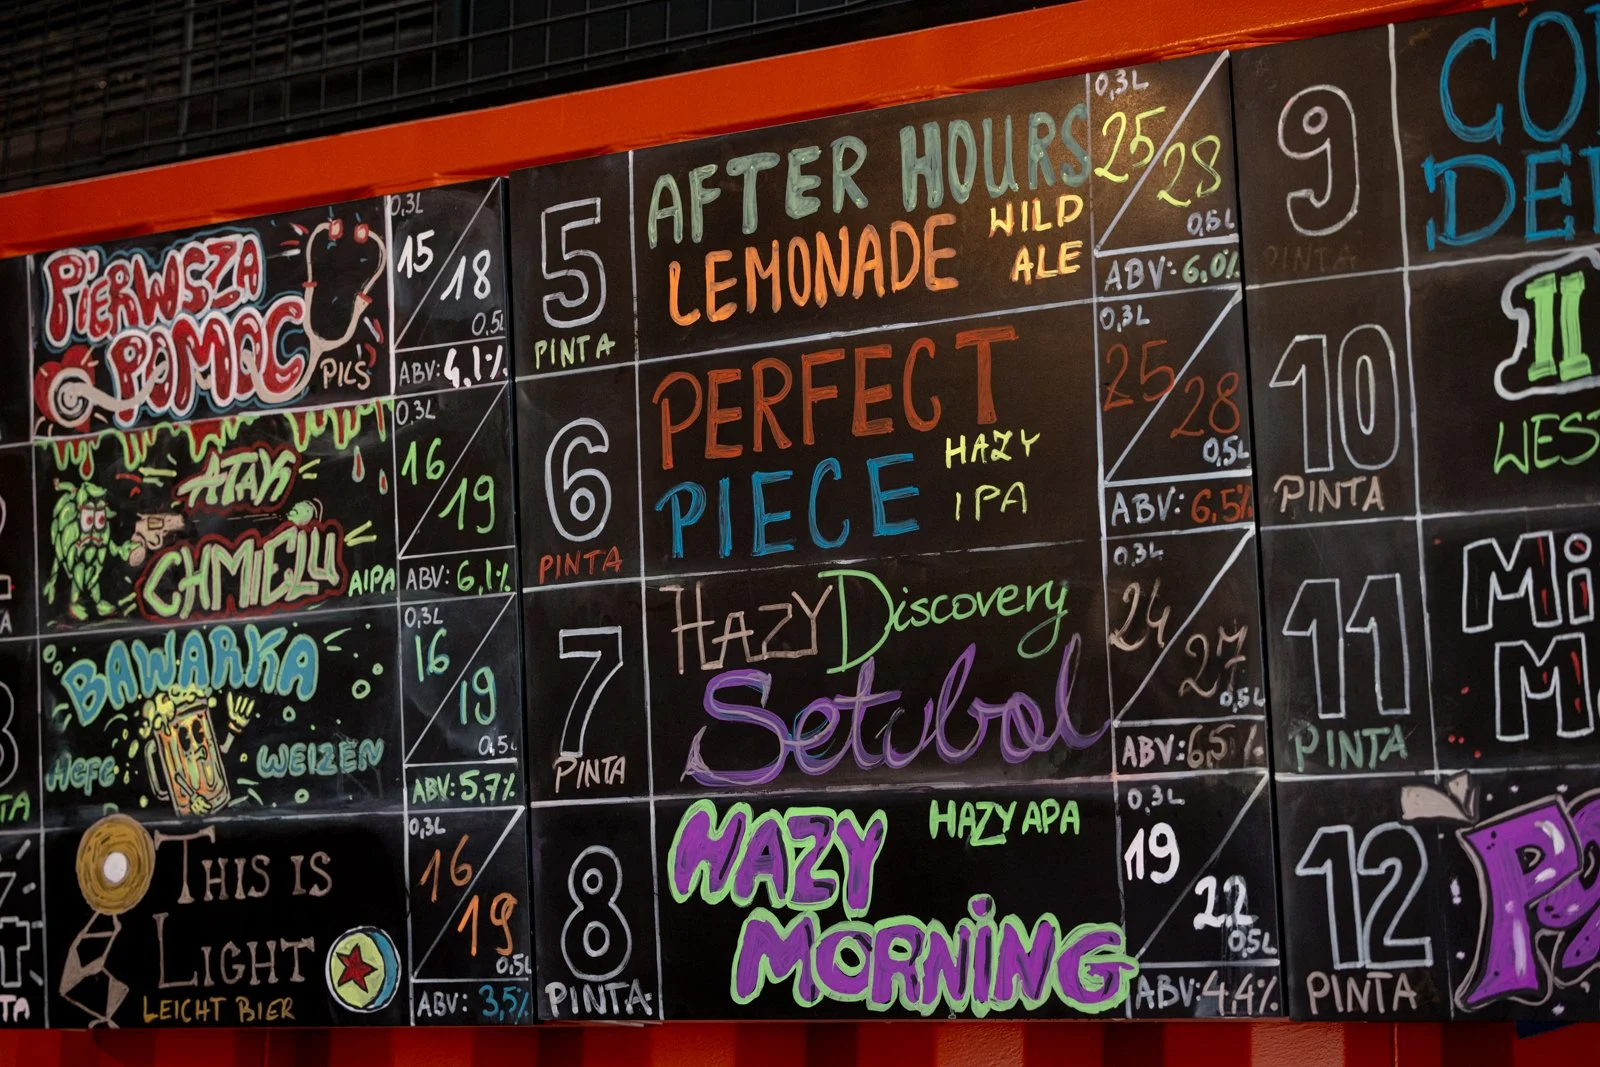 PIERWSZA
POMOC
PILS
0,3L
15
18
0,5L
ABV: 4,1%
ATAK
CHMIELU
AIPA
0,3L
16
19
ABV: 6,1%
BAWARKA
HEFE WEIZEN
0,3L
16
19
0,5L
ABV: 5,7%
THIS IS
LIGHT
LEICHT BIER
0,3L
16
19
0,5L
ABV: 3,5%
5
PINTA
AFTER HOURS
LEMONADE
WILD
ALE
0,3L
25
28
0,5L
ABV: 6,0%
6
PINTA
PERFECT
PIECE
HAZY
IPA
0,3L
25
28
0,5L
ABV: 6,5%
7
PINTA
HAZY Discovery
Setubal
0,3L
24
27
0,5L
ABV: 6,5%
8
PINTA
HAZY
MORNING
HAZY APA
0,3L
19
22
0,5L
ABV: 4,4%
9
PINTA
CO
DE
10
PINTA
II
WES
11
PINTA
Mi
M
12
PINTA
P